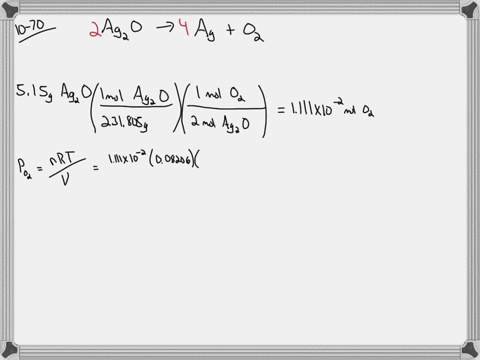 10-70 2Ag₂O → 4Ag + O₂
5.15g Ag₂O (1 mol Ag₂O / 231.805g) (1 mol O₂ / 2 mol Ag₂O) = 1.111x10⁻² mol O₂
P_O₂ = nRT / V = 1.111x10⁻² (0.08206)(